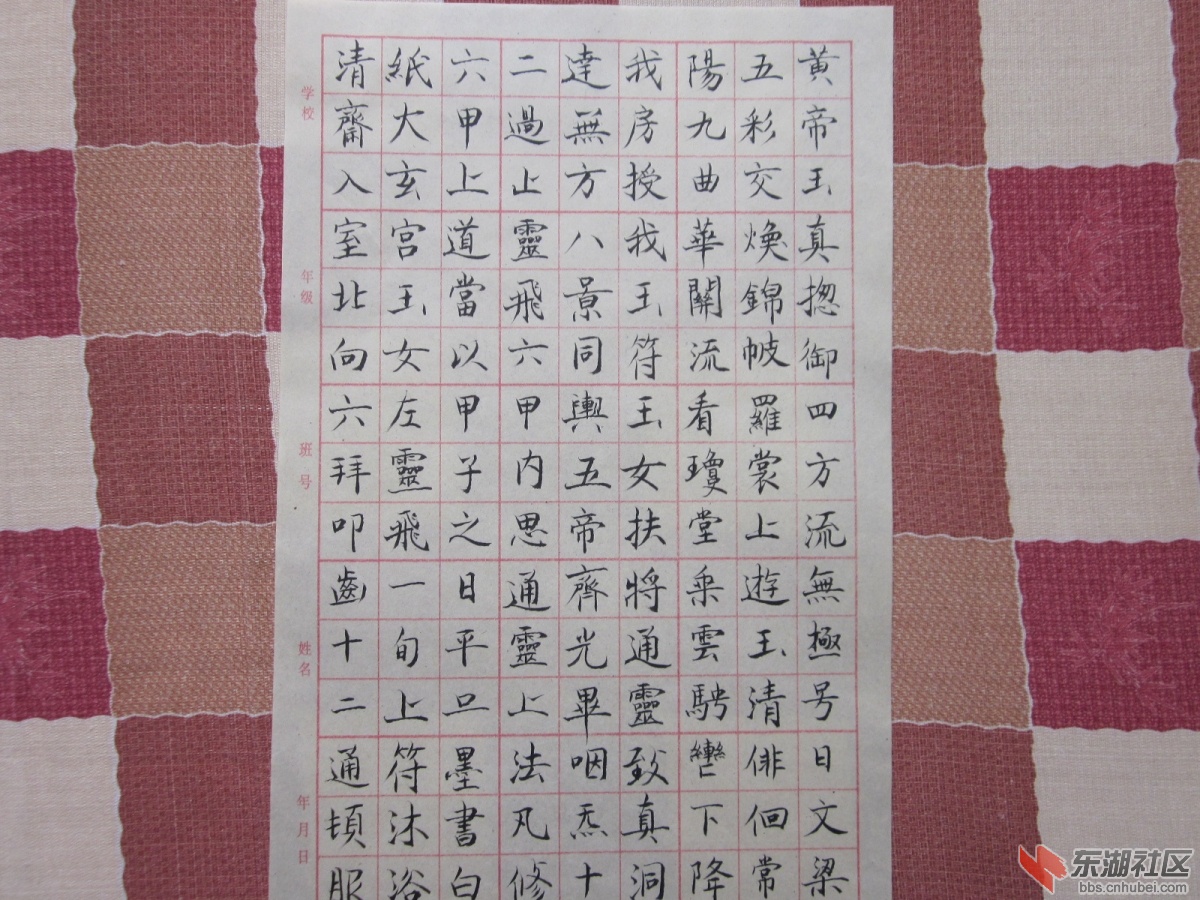 黄帝玉真揔御四方流無極号日文梁
五彩交煥錦帔羅裳上遊玉清俳佪常
陽九曲華關流看瓊堂乗雲騁轡下降
我房授我玉符玉女扶將通靈致真洞
達無方八景同輿五帝齊光畢咽炁十
二過止靈飛六甲内思通靈上法凡修
六甲上道當以甲子之日平旦墨書白
紙大玄宫玉女左靈飛一旬上符沐浴
清齋入室北向六拜叩齒十二通頓服
学校
年级
班号
姓名
年月日
东湖社区
bbs.cnhubei.com